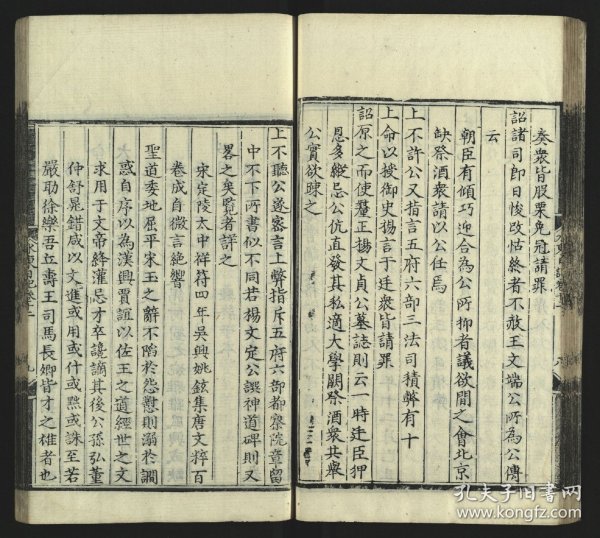 奏衆皆股栗免冠請罪
詔諸司即日悛改怙終者不敢王文端公所為公傳
云
朝臣有傾巧迎合為公所抑者議欲間之會北京
缺祭酒衆請以公任焉
上不許公又指言五府六部三法司積弊有十
上命以授御史揚言于廷請罪
詔原之而使釐正楊文貞公墓誌則云一時廷臣狎
恩多縱忌公伉直發其私適大學闕祭酒衆共舉
公實欲疎之
上不聽公遂密言上弊指斥五府六部都察院章留
中不下两書似不同若楊文定公譔神道碑則又
畧之矣覧者詳之
宋定陵太中祥符四年吳興姚鉉集唐文粹百
卷成自微言絶響
聖道委地屈平宋玉之辭不陷於怨懟則溺於謟
惑自序以為漢興賈誼以佐王之道經世之文
求用于文帝絳灌忌才卒讒謫其後公孫弘董
仲舒晁錯咸以文進或用或什或黙或誅至若
嚴助徐樂吾丘壽王司馬長卿皆才之雄者也
水東日記卷十二
九
孔夫子旧书网
www.kongfz.com